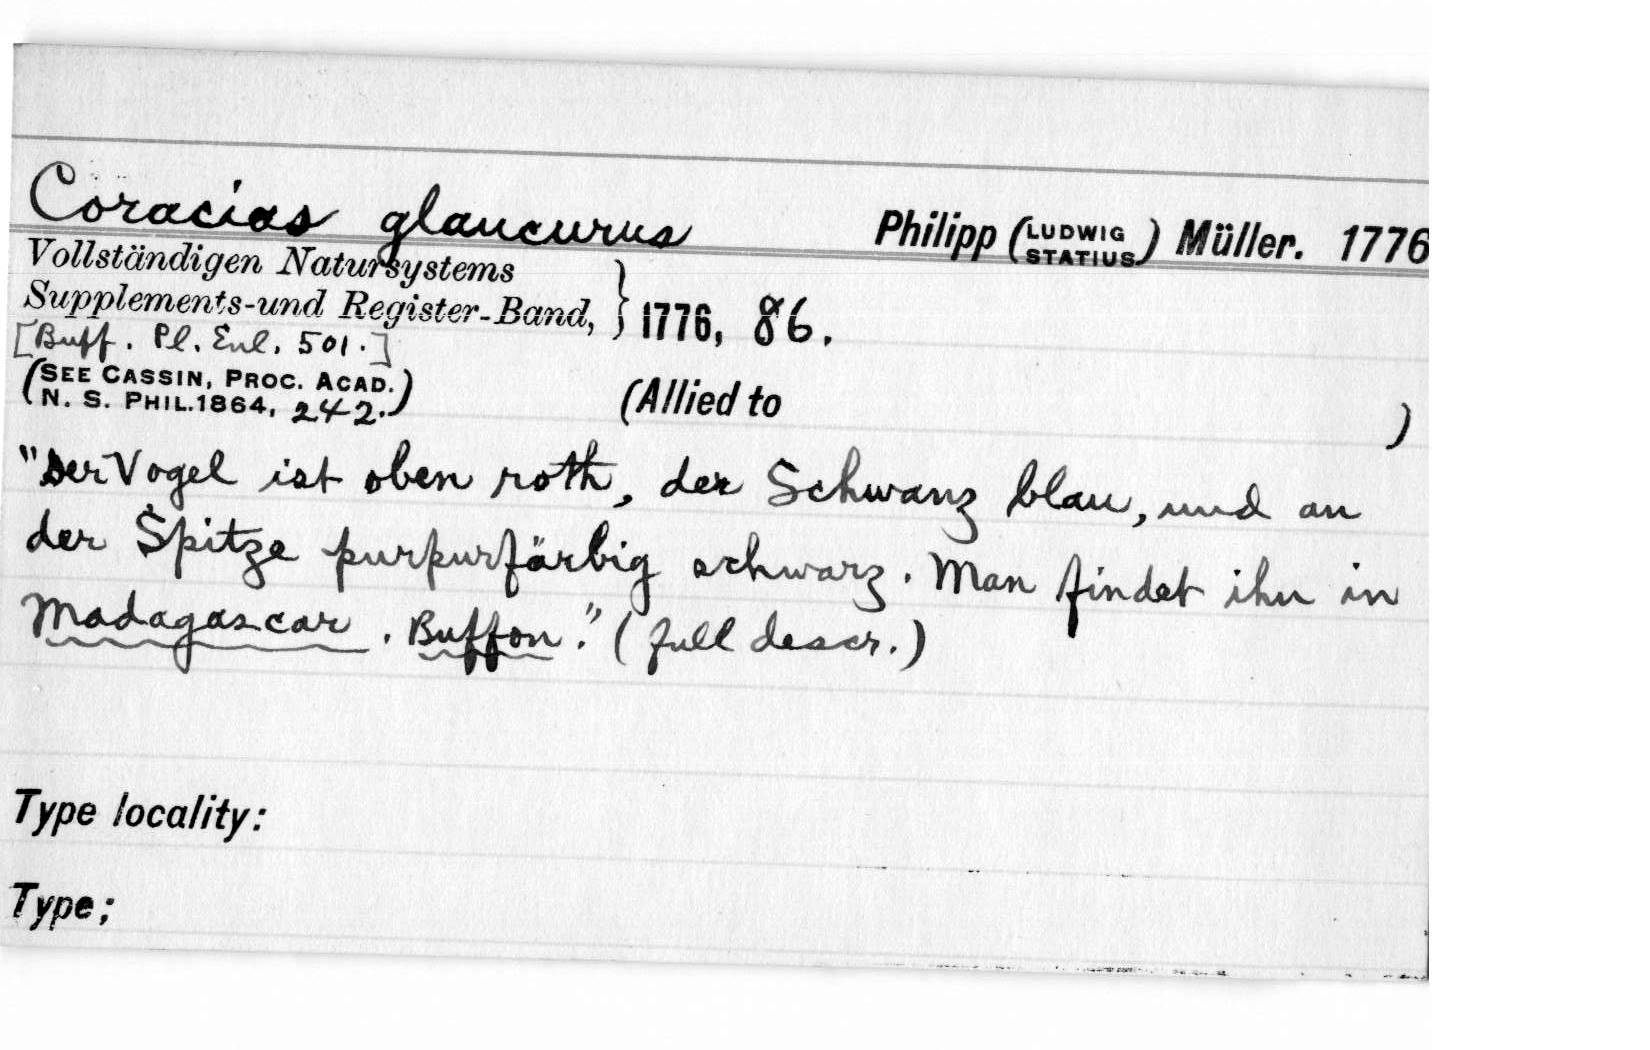 Coracias glaucurus Philipp (LUDWIG STATIUS) Müller. 1776
Vollständigen Natursystems
Supplements-und Register-Band, } 1776, 86.
[Buff. Pl. Enl. 501.]
(SEE CASSIN, PROC. ACAD.
N. S. PHIL. 1864, 242.) (Allied to )
"Der Vogel ist oben roth, der Schwanz blau, und an
der Spitze purpurfärbig schwarz. Man findet ihn in
Madagascar. Buffon." (full descr.)
Type locality:
Type;